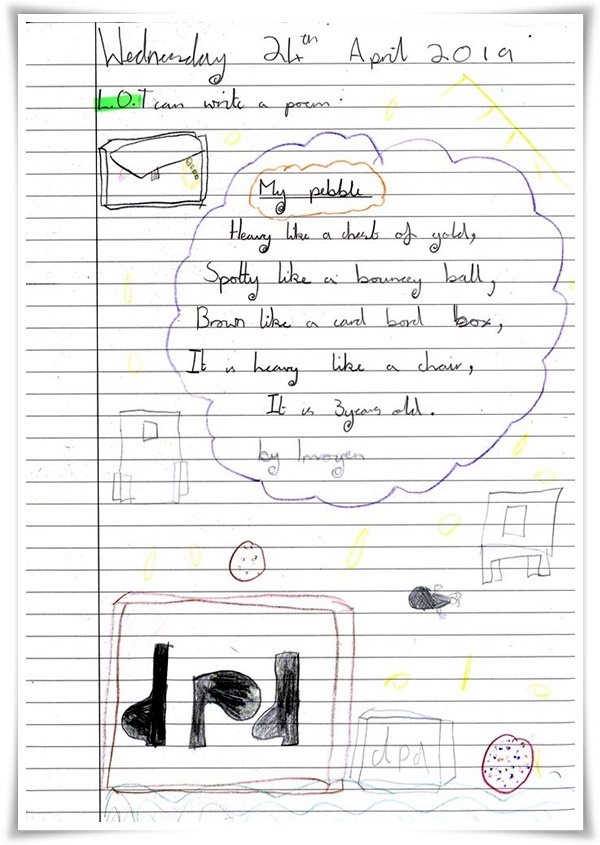 Wednesday 24th April 2019
L.O.I can write a poem.
My pebble
Heavy like a chest of gold,
Spotty like a bouncey ball,
Brown like a card bord box,
It is heavy like a chair,
It is 3 years old.
by Imogen
dpd
dpd